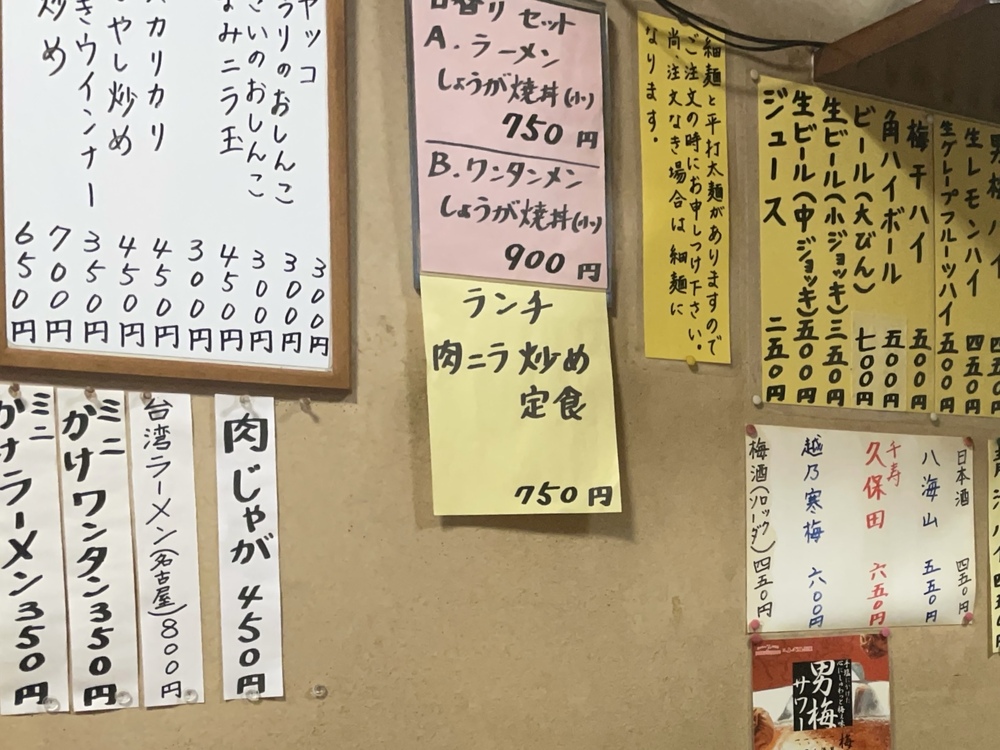 ヤッコ 300円
ラリのおしんこ 300円
さいのおしんこ 300円
なみニラ玉 450円
300円
カリカリ 450円
やし炒め 450円
きウインナー 350円
炒め 700円
650円
日替り セット
A.ラーメン
しょうが焼丼(小)
750円
B.ワンタンメン
しょうが焼丼(小)
900円
ランチ
肉ニラ炒め
定食
750円
細麺と平打太麺がありますので
ご注文の時にお申しつけ下さい。
尚、注文なき場合は細麺に
なります。
男梅ハイ 四五0
生レモンハイ 四五0円
生グレープフルーツハイ 五00円
梅干ハイ 五00円
角ハイボール 五00円
ビール(大びん) 七00円
生ビール(小ジョッキ)三五0円
生ビール(中ジョッキ)五00円
ジュース 二五0円
肉じゃが 450円
台湾ラーメン(名古屋)800円
ミニ
かけワンタン350円
ミニ
かけラーメン350円
日本酒 四五0円
八海山 五五0円
千寿
久保田 六五0円
越乃寒梅 六00円
梅酒(ロックソーダ)四五0円
男梅
サワー